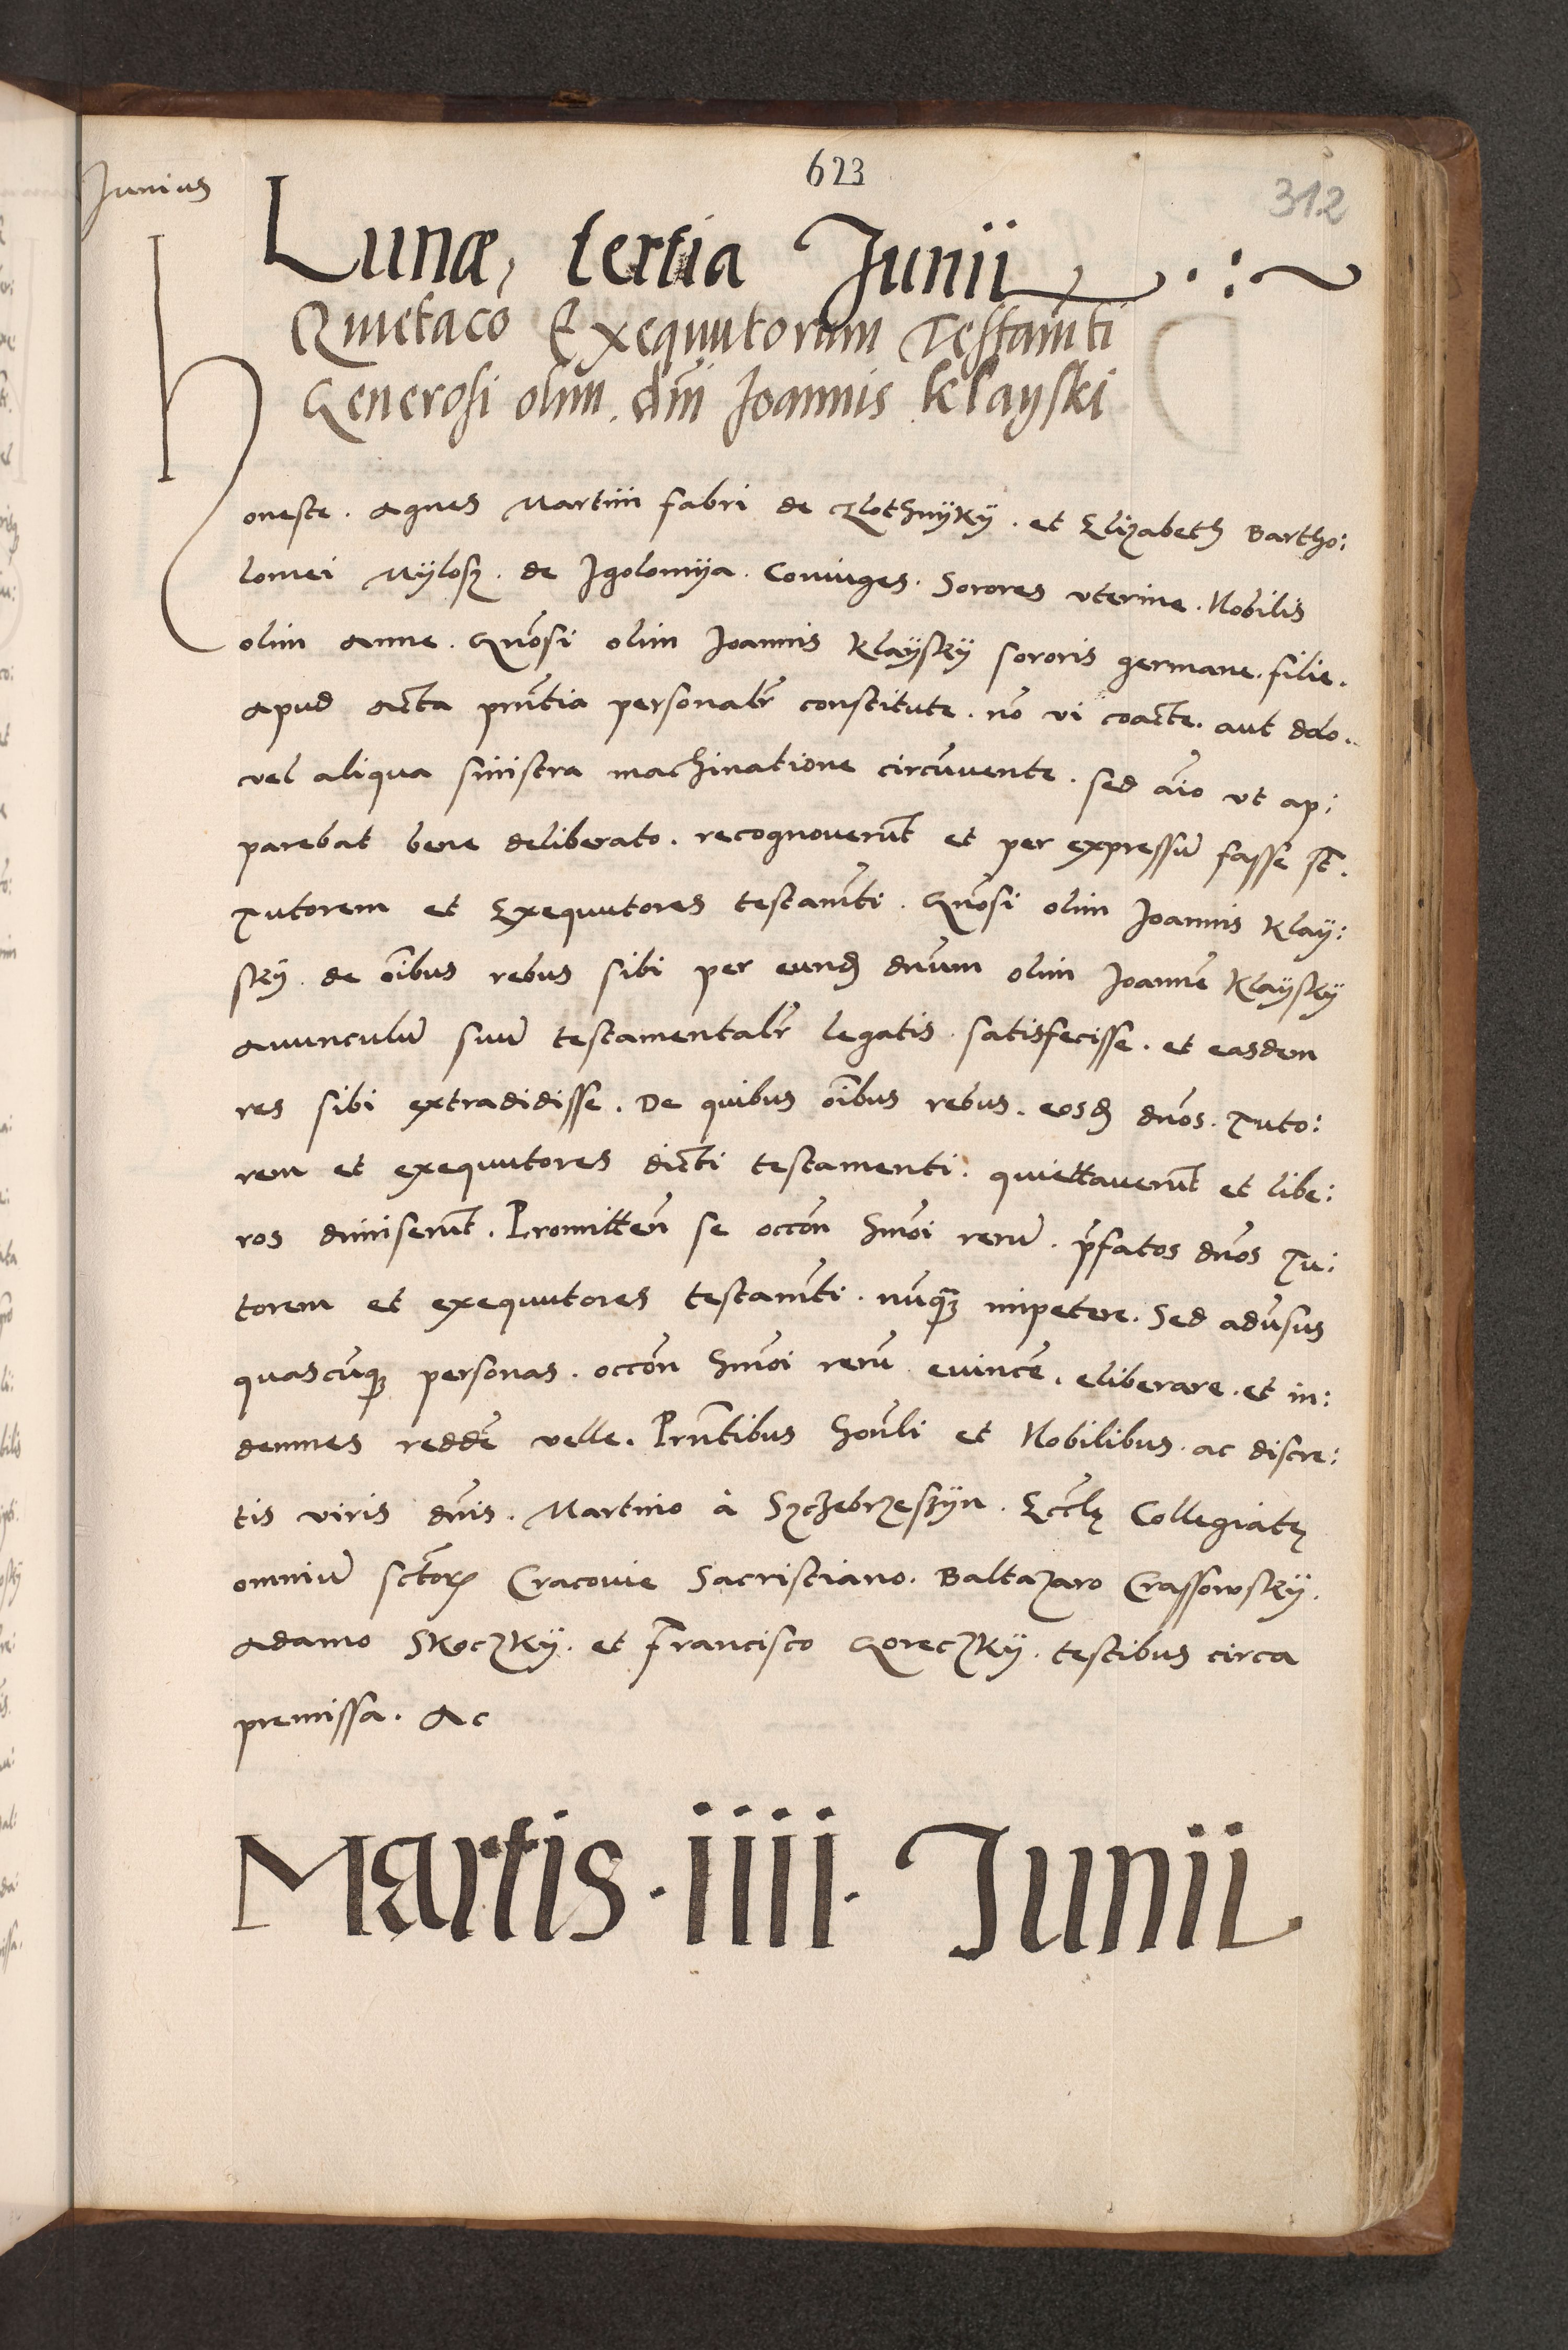 623
312
Junius
Lunæ, tertia Junii
Quietacõ Exequutorum Testam̃ti
Generosi olim. dñi Joannis Klayski
Honeste. Agnes Martini fabri de Zlothnÿkÿ. et Elizabeth Bartho:
lomei Mÿlosz. de Jgolomÿa. Coniuges. Sorores vterine. Nobilis
olim Anne. Gñosi olim Joannis Klaÿskÿ sororis germane. filie.
Apud Acta pñtia personalr̃ constitute. nõ vi coacte. aut dolo.
vel aliqua sinistra machinatione circũvente. sed aĩo vt ap:
parebat bene deliberato. recognouerũt et per expressũ fasse sт̃.
Tutorem et Exequutores testam̃ti. Gñosi olim Joannis Klaÿ:
skÿ. de oĩbus rebus sibi per eundꝫ dñum olim Joannẽ Klaÿskÿ
Auunculũ suũ testamentalr̃ legatis. satisfecisse. et easdem
res sibi extradidisse. De quibus oĩbus rebus. eosdꝫ dños. Tuto:
rem et exequutores dicti testamenti. quiettauerũt et libe:
ros dimiserũt. Promitteñ se occõn hm̃oi rerũ. p̃fatos dños Tu:
torem et exequutores testam̃ti. nũqꝫ impetere. Sed adũsus
quascũqꝫ personas. occõn hm̃oi rerũ euincẽ. eliberare. et in:
demnes reddẽ velle. Pñtibus hoñli et Nobilibus. ac discre:
tis viris dñis. Martino à Szczebrzeszÿn. Eccl̃ę Collegiatę
omniũ sctõrꝝ Cracouie Sacristiano. Baltazaro Crassowskÿ.
Adamo Skoczkÿ. et Francisco Goreczkÿ. testibus circa
premissa. Ac
Martis. iiii. Junii